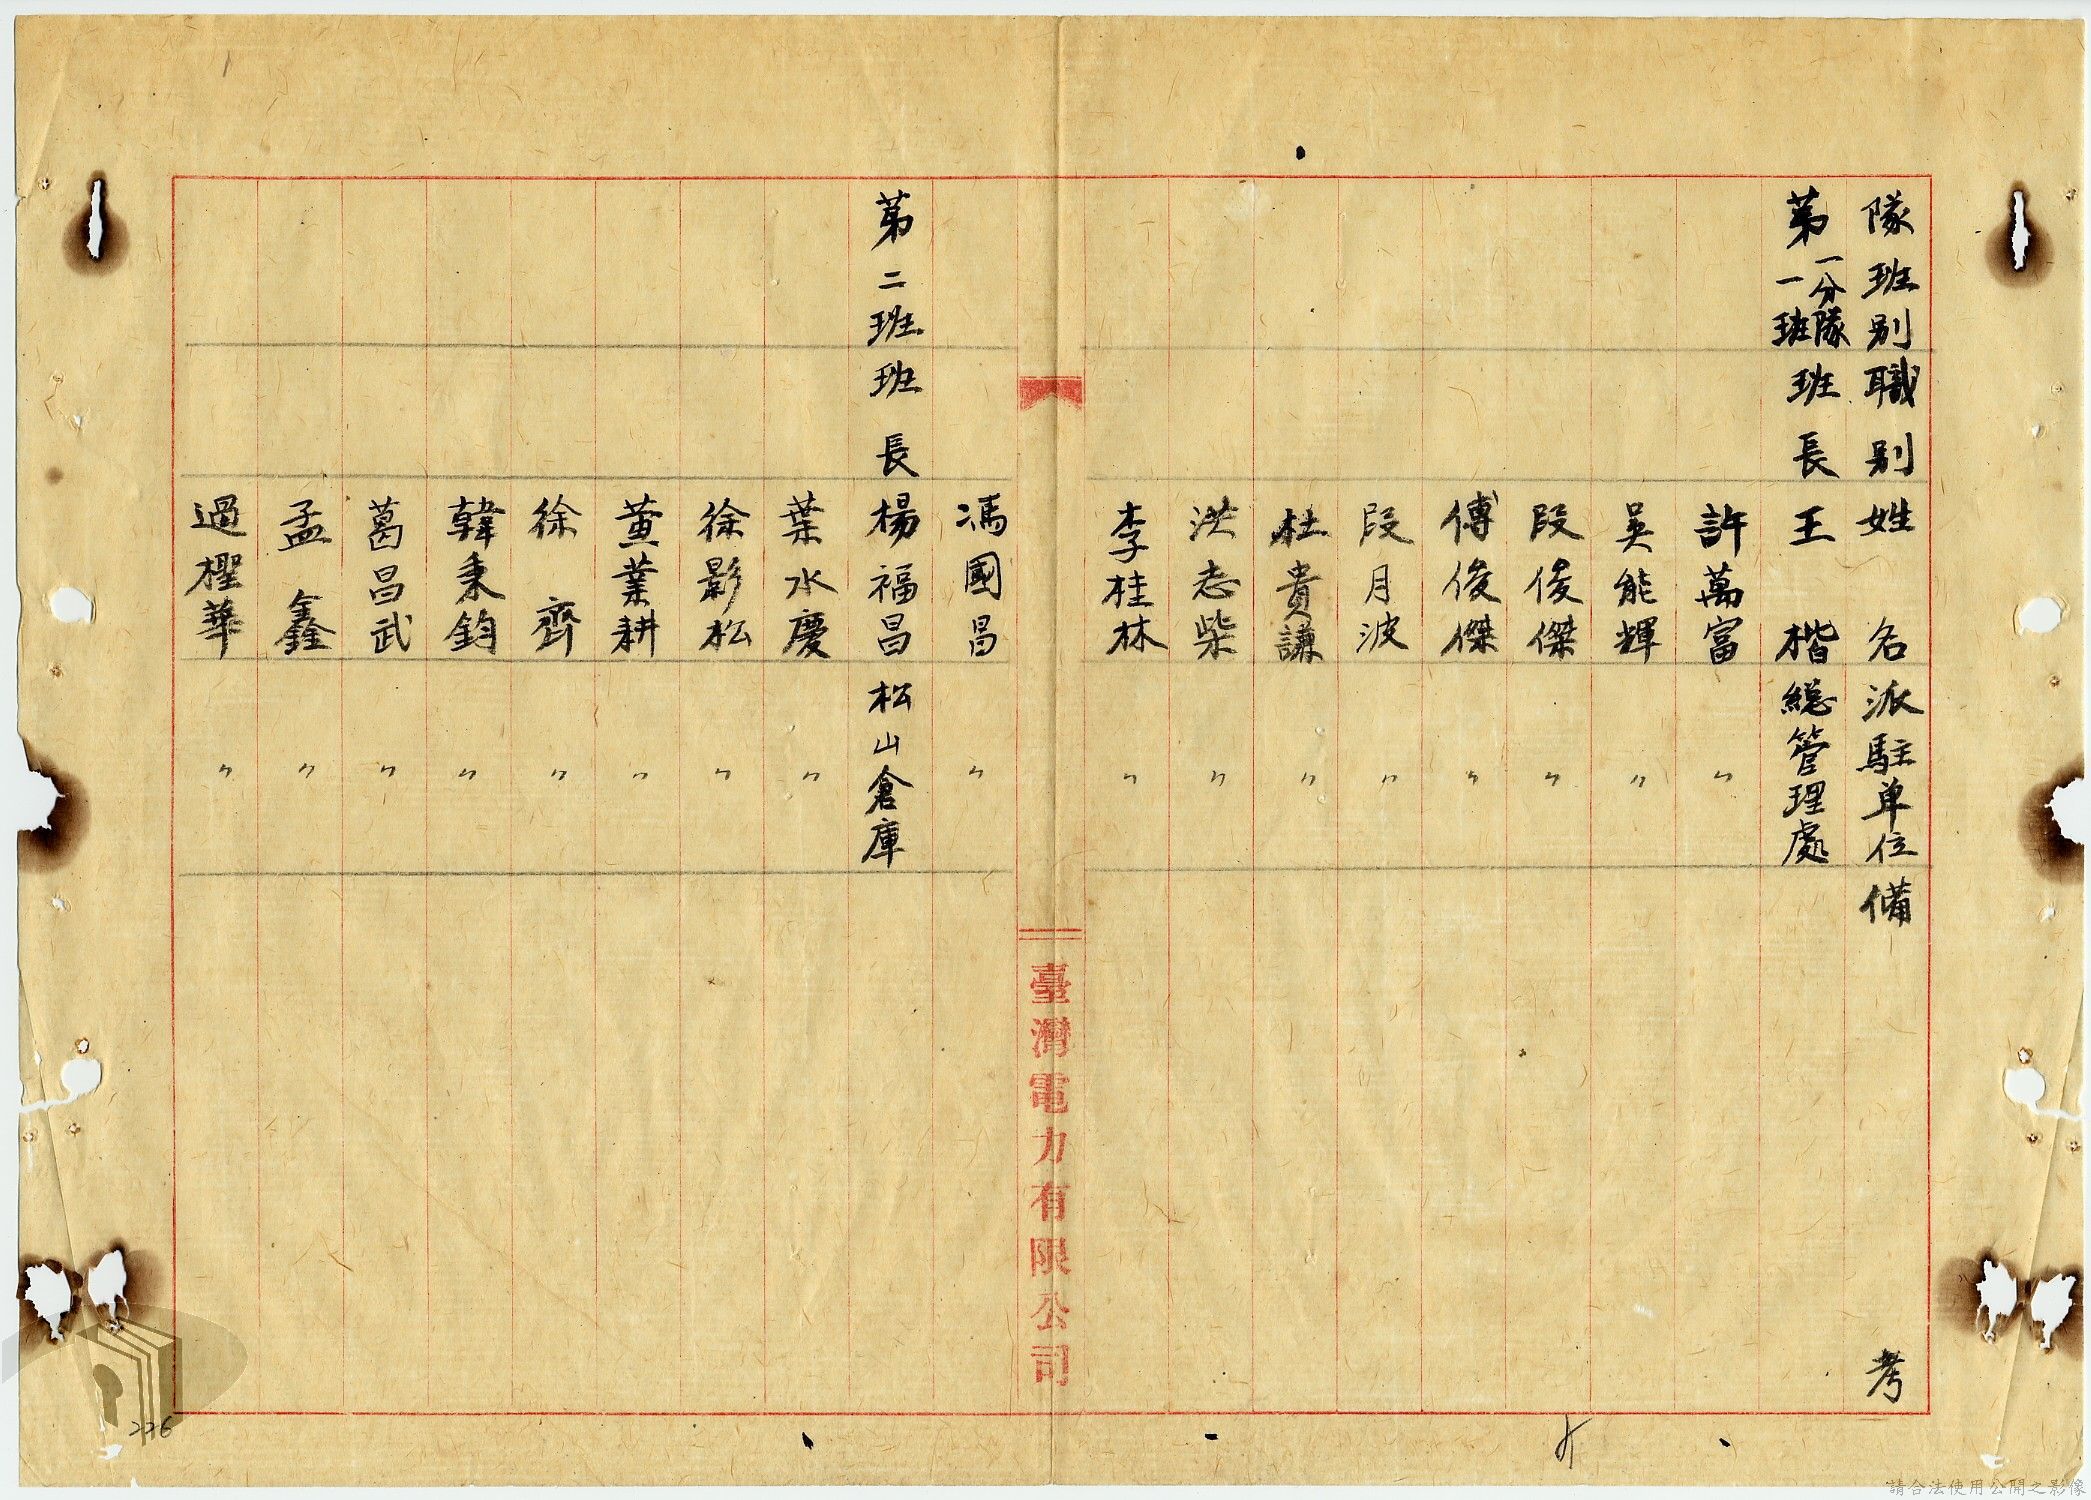 隊班别職别姓名派駐單位備考
第一分隊一班班長王楷總管理處
許萬富〃
吳能輝〃
段俊傑〃
傅俊傑〃
段月波〃
杜貴謙〃
洪志柴〃
李桂林〃
臺灣電力有限公司
馮國昌〃
第二班班長楊福昌松山倉庫
葉水慶〃
徐影松〃
董業耕〃
徐齊〃
韓秉鈞〃
葛昌武〃
孟鑫〃
過檉華〃
226
請合法使用公開之影像